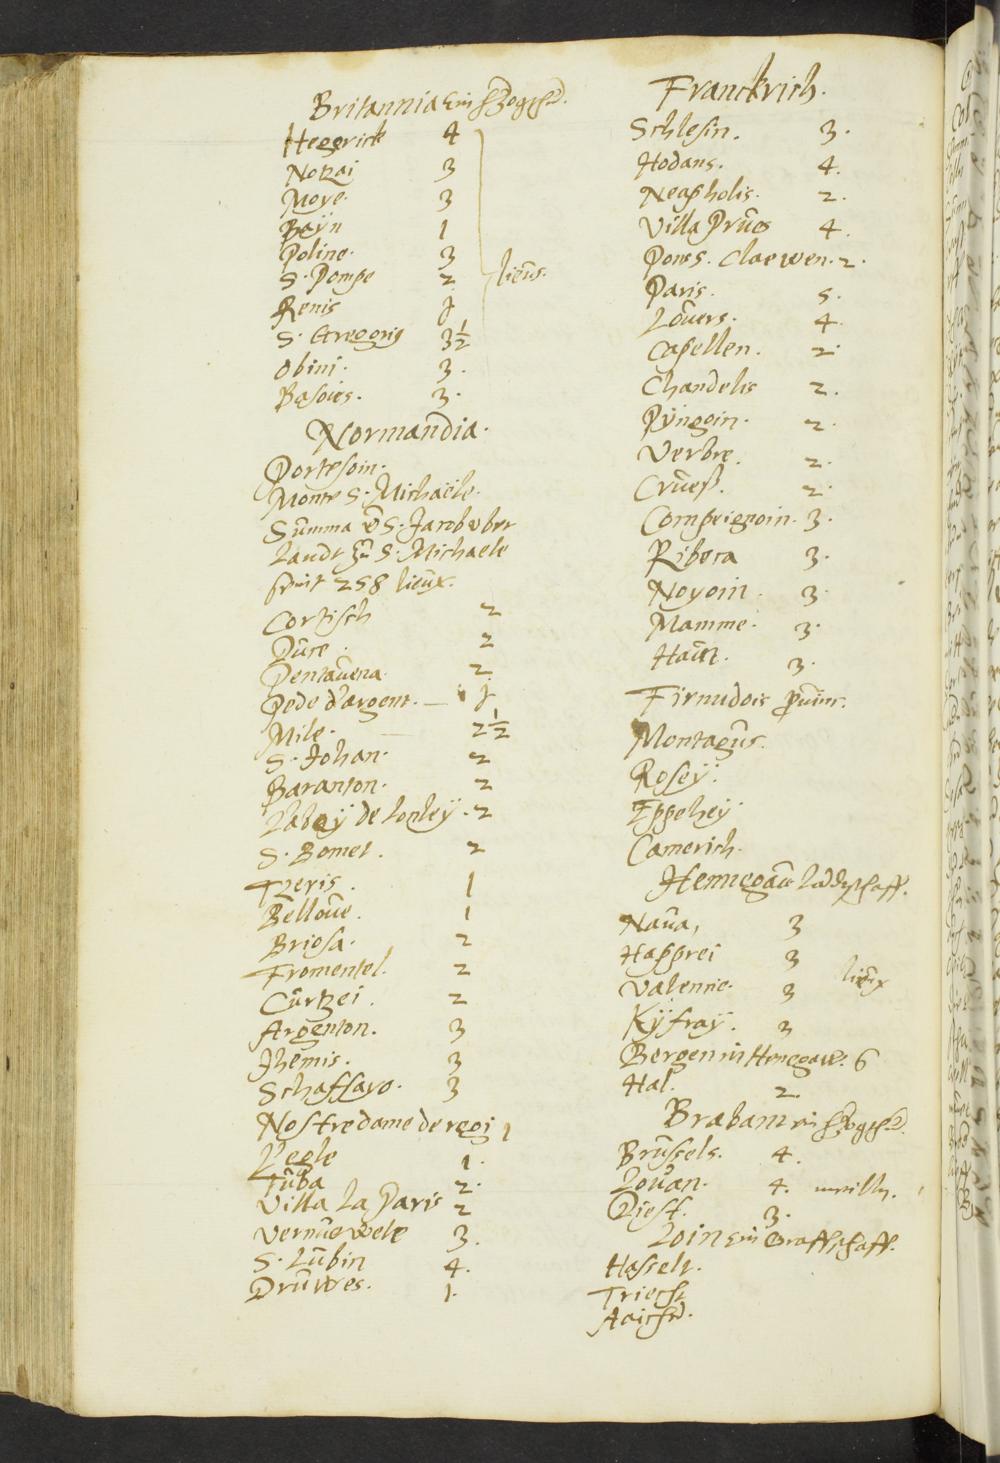 Britannia ein
Heggrick 4
Notzai 3
Moye. 3
Bayn 1
Poline. 3
S. Pompe 2 lieus.
Renis j
S. Gregorig 3½
Obini. 3.
Basoies. 3.
Normandia.
Portesoin.
Monte S. Michaele.
Summa S. Jacob uber
Landt zu S. Michaele
seint 258 lieux.
Cortisch 2
Dure. 2
Pentauena. 2
Pede d'argent. — j
Mile. 2½
S. Johan. 2
Baranton. 2
Labay de lonley. 2
S. Bomel. 2
Tzeris. 1
Belloue. 1
Briosa. 2
Fromentel. 2
Curtzei. 2
Argenton. 3
Jhemis. 3
Schaffayo. 3
Nostre dame de regi 1
L'egle 1.
Tuba 2.
Villa La Paris 2
Vernuewele 3.
S. Lubin 4.
Druwes. 1.
Franckrich.
Schlesin. 3.
Hodans. 4.
Neapholis. 2.
Villa Prues 4.
Pons. Claewen. 2.
Paris. 5.
Louers. 4.
Capellen. 2.
Chandelis 2.
Pyngoin. 2.
Verbre. 2.
Crueß. 2.
Compeignoin. 3.
Ribera 3.
Noyoin. 3.
Mamme. 3.
Haun. 3.
Firnudois
Montagus.
Rosey.
Eppehey
Camerich.
Hennegau
Naua, 3
Happrei 3
Valenne. 3 lieux
Kyfray. 3
Bergen in Henegaw. 6
Hal. 2
Brabant ein
Brussels. 4.
Louan. 4.
Diest. 3.
Loin ein Graffschafft.
Hasselt.
Triecht